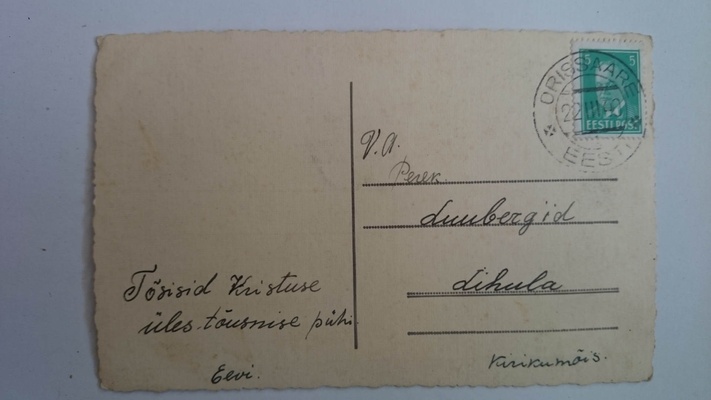 5
ORISSAARE
22 III 40
EESTI POST
EESTI
V. A.
Perek.
Luubergid
Lihula
Kirikumõis.
Tõsisid Kristuse
üles-tõusmise pühi
Eevi.